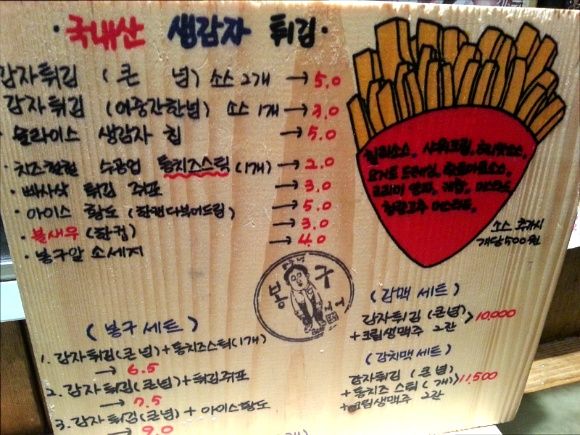 · 국내산 생감자 튀김 ·
감자튀김 (큰 넘) 소스 2개 → 5.0
감자튀김 (어중간한넘) 소스 1개 → 3.0
· 슬라이스 생감자 칩 → 5.0
· 치즈철철 수공업 통치즈스틱 (1개) → 2.0
· 빠사삭 튀김 쥐포 → 3.0
· 아이스 황도 (한캔다부어드림) → 5.0
· 불새우 (한컵) → 3.0
· 봉구앞 소세지 → 4.0
칠리소스, 사워크림,
소스 추가시
개당 500원
봉구
(봉구 세트)
1. 감자튀김(큰넘)+통치즈스틱(1개)
→ 6.5
2. 감자튀김(큰넘)+튀김쥐포
→ 7.5
3. 감자튀김(큰넘) + 아이스황도
→ 9.0
(감맥 세트)
감자튀김 (큰넘)
+크림생맥주 2잔 > 10,000
(감치맥 세트)
감자튀김 (큰넘)
+통치즈 스틱 (1개) > 11,500
+크림생맥주 2잔